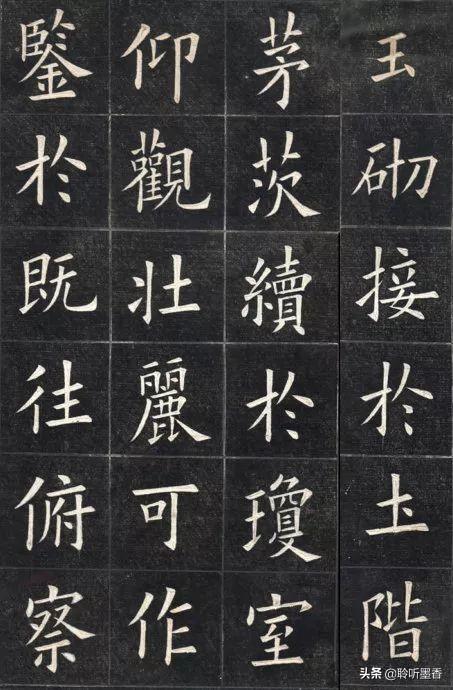 玉砌接於土階
茅茨續於瓊室
仰觀壯麗可作
鑒於既往俯察
头条 @聆听墨香